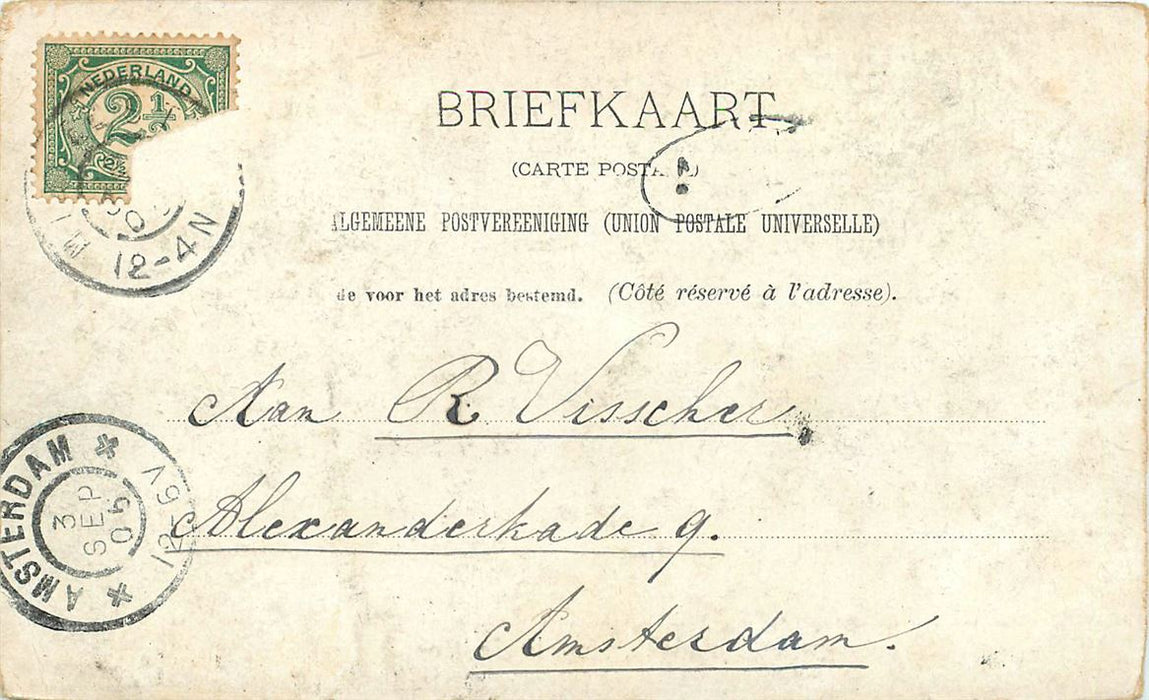 NEDERLAND
2½
12-4N
BRIEFKAART
(CARTE POSTALE)
ALGEMEENE POSTVEREENIGING (UNION POSTALE UNIVERSELLE)
de voor het adres bestemd. (Côté réservé à l'adresse).
Aan R Visscher
AMSTERDAM
3 SEP 06
12-6V
Alexanderkade 9.
Amsterdam.